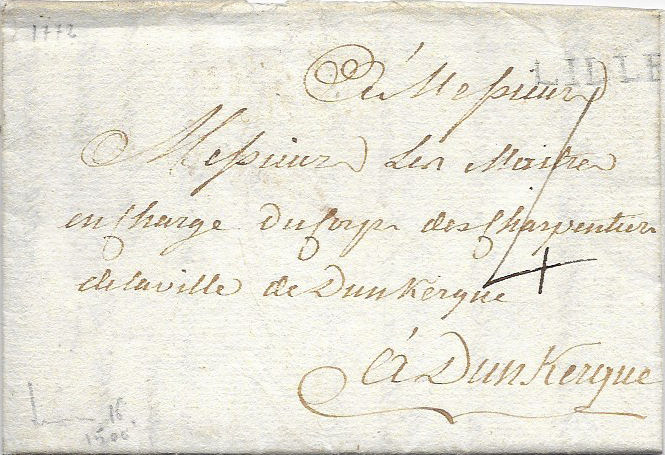 1772
LILLE
à Messieurs
Messieurs Les Maitres
en Charge Du Corps des Charpentiers
de la ville de Dunkerque
4
à Dunkerque
16
1500.